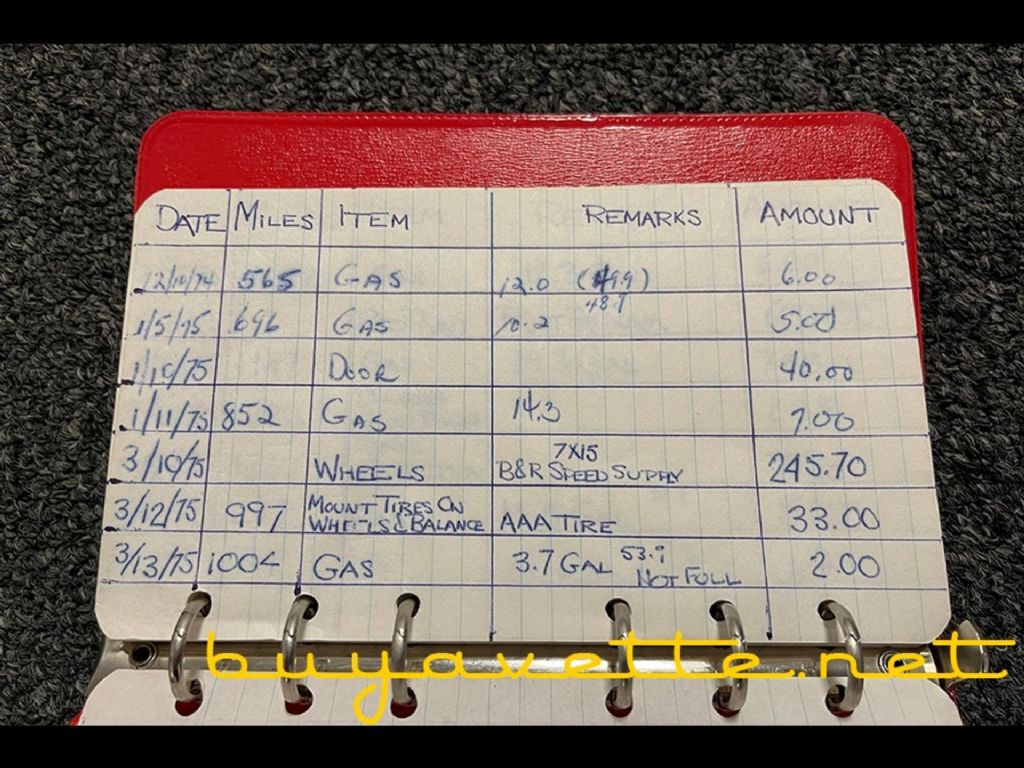 DATE MILES ITEM REMARKS AMOUNT
12/10/74 565 GAS 12.0 (49.9) 6.00
48.9
1/5/75 696 GAS 10.2 5.00
1/10/75 DOOR 40.00
1/11/75 852 GAS 14.3 7.00
3/10/75 WHEELS 7X15 B&R SPEED SUPPLY 245.70
3/12/75 997 MOUNT TIRES ON WHEELS & BALANCE AAA TIRE 33.00
3/13/75 1004 GAS 3.7 GAL 53.9 NOT FULL 2.00
buyavette.net